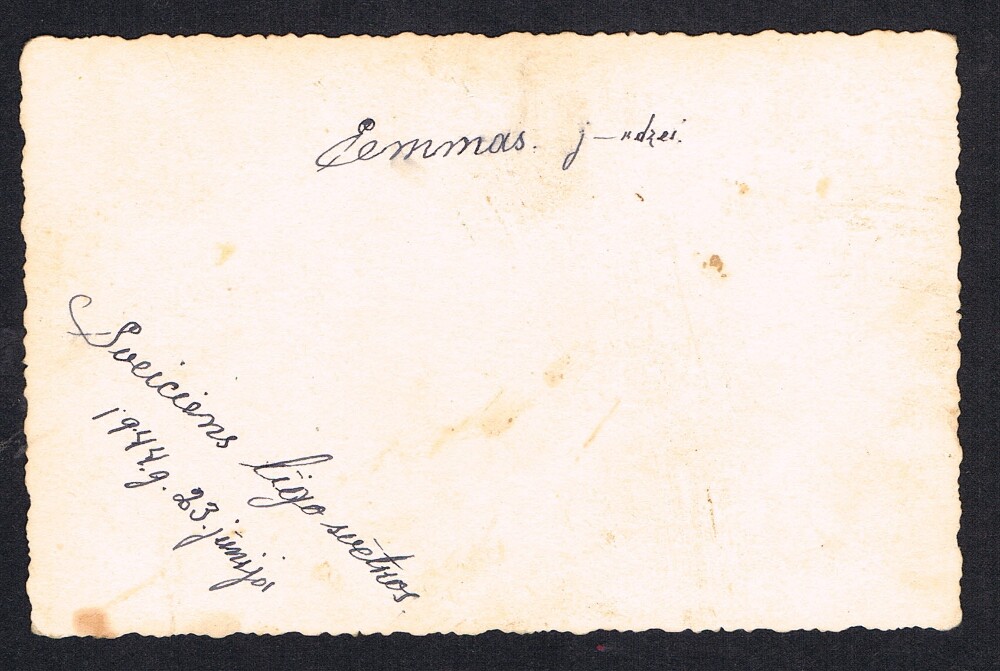 Eemmas. j-ndzei.
Sveiciens līgo svētkos.
1944.g. 23. jūnijā